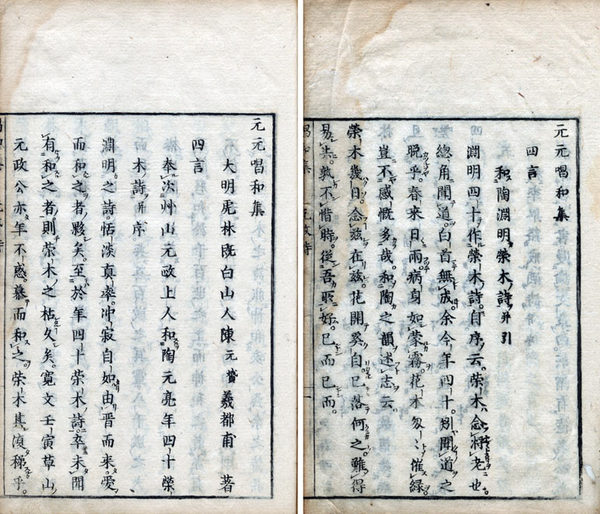 元元唱和集
四言
和陶淵明榮木詩并引
淵明四十作榮木詩。自序云。榮木念將老也。
總角聞道。白首無成。余今年四十。別聞道之
脫乎。春來日雨。病身如蒙霧。花木匆々催綠
豈不感慨多哉。和陶之韻述志云
榮木幾日。念茲在茲。花開奚自。已落何之。難得
易失。孰不惜時。從吾所好。已而已而。
元元唱和集
大明虎林既白山人陳元贇羲都甫 著
四言
奉次艸山元政上人和陶元亮年四十榮
木詩并序
淵明之詩恬淡真率。冲寂自如。由晉而來。愛
而和之者夥矣。至於年四十榮木詩。卒未聞
有和之者。則榮木之枯久矣。寬文壬寅草山
元政公亦年不惑。慕而和之。榮木其復穉乎。